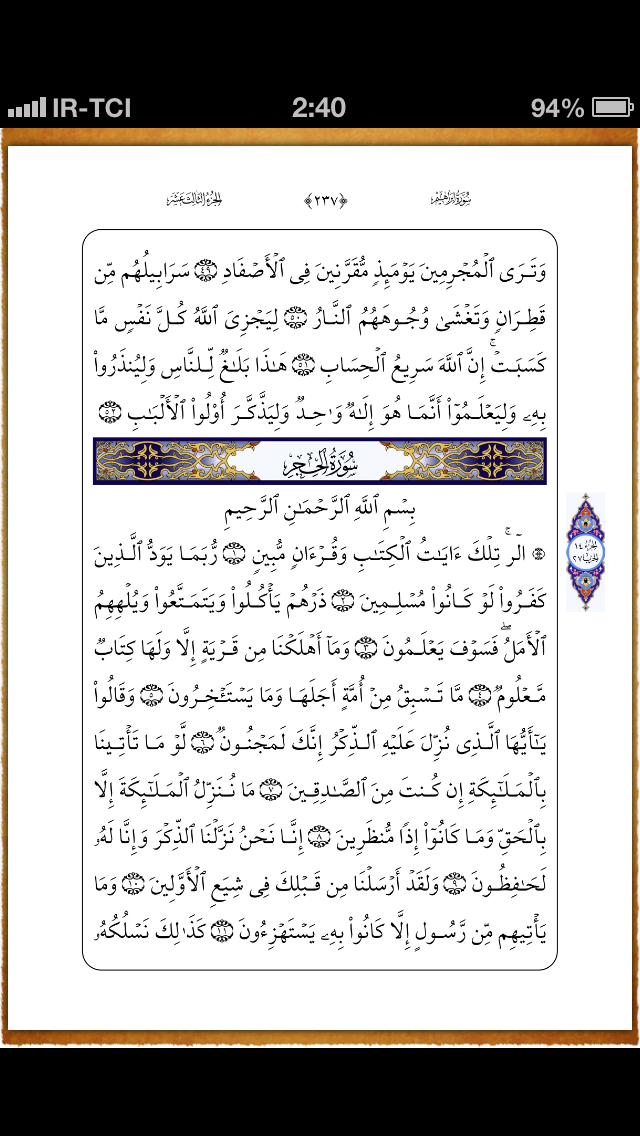 IR-TCI 2:40 94%
سُورَةُ إِبْرَاهِيم ﴿٢٣٧﴾ الجُزْءُ الثَّالِثَ عَشَرَ
وَتَرَى ٱلْمُجْرِمِينَ يَوْمَئِذٍ مُّقَرَّنِينَ فِى ٱلْأَصْفَادِ ٤٩ سَرَابِيلُهُم مِّن
قَطِرَانٍ وَتَغْشَىٰ وُجُوهَهُمُ ٱلنَّارُ ٥٠ لِيَجْزِىَ ٱللَّهُ كُلَّ نَفْسٍ مَّا
كَسَبَتْ ۚ إِنَّ ٱللَّهَ سَرِيعُ ٱلْحِسَابِ ٥١ هَٰذَا بَلَٰغٌ لِّلنَّاسِ وَلِيُنذَرُوا۟
بِهِۦ وَلِيَعْلَمُوٓا۟ أَنَّمَا هُوَ إِلَٰهٌ وَٰحِدٌ وَلِيَذَّكَّرَ أُو۟لُوا۟ ٱلْأَلْبَٰبِ ٥٢
سُورَةُ الْحِجْرِ
بِسْمِ ٱللَّهِ ٱلرَّحْمَٰنِ ٱلرَّحِيمِ
۞ الٓر ۚ تِلْكَ ءَايَٰتُ ٱلْكِتَٰبِ وَقُرْءَانٍ مُّبِينٍ ١ رُّبَمَا يَوَدُّ ٱلَّذِينَ
الجزء ١٤
الحزب ٢٧
كَفَرُوا۟ لَوْ كَانُوا۟ مُسْلِمِينَ ٢ ذَرْهُمْ يَأْكُلُوا۟ وَيَتَمَتَّعُوا۟ وَيُلْهِهِمُ
ٱلْأَمَلُ ۖ فَسَوْفَ يَعْلَمُونَ ٣ وَمَآ أَهْلَكْنَا مِن قَرْيَةٍ إِلَّا وَلَهَا كِتَابٌ
مَّعْلُومٌ ٤ مَّا تَسْبِقُ مِنْ أُمَّةٍ أَجَلَهَا وَمَا يَسْتَـْٔخِرُونَ ٥ وَقَالُوا۟
يَٰٓأَيُّهَا ٱلَّذِى نُزِّلَ عَلَيْهِ ٱلذِّكْرُ إِنَّكَ لَمَجْنُونٌ ٦ لَّوْ مَا تَأْتِينَا
بِٱلْمَلَٰٓئِكَةِ إِن كُنتَ مِنَ ٱلصَّٰدِقِينَ ٧ مَا نُنَزِّلُ ٱلْمَلَٰٓئِكَةَ إِلَّا
بِٱلْحَقِّ وَمَا كَانُوٓا۟ إِذًا مُّنظَرِينَ ٨ إِنَّا نَحْنُ نَزَّلْنَا ٱلذِّكْرَ وَإِنَّا لَهُۥ
لَحَٰفِظُونَ ٩ وَلَقَدْ أَرْسَلْنَا مِن قَبْلِكَ فِى شِيَعِ ٱلْأَوَّلِينَ ١٠ وَمَا
يَأْتِيهِم مِّن رَّسُولٍ إِلَّا كَانُوا۟ بِهِۦ يَسْتَهْزِءُونَ ١١ كَذَٰلِكَ نَسْلُكُهُۥ